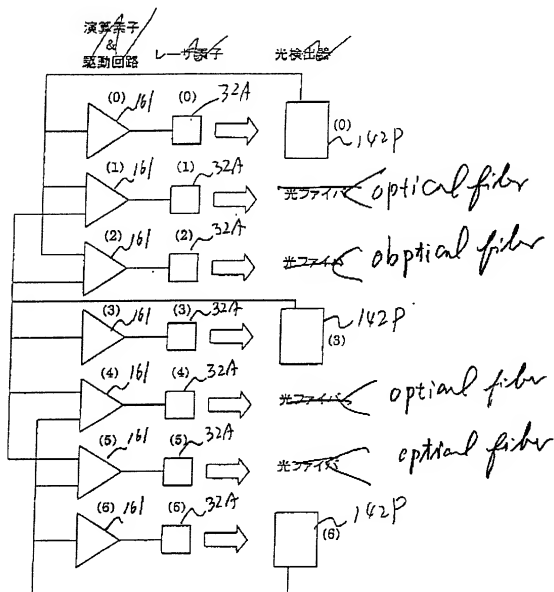 演算素子
&
駆動回路 レーザ素子 光検出器
(0) 161 (0) 32A (0) 142P
(1) 161 (1) 32A 光ファイバ optical fiber
(2) 161 (2) 32A 光ファイバ obptical fiber
(3) 161 (3) 32A (3) 142P
(4) 161 (4) 32A 光ファイバ optical fiber
(5) 161 (5) 32A 光ファイバ optical fiber
(6) 161 (6) 32A (6) 142P